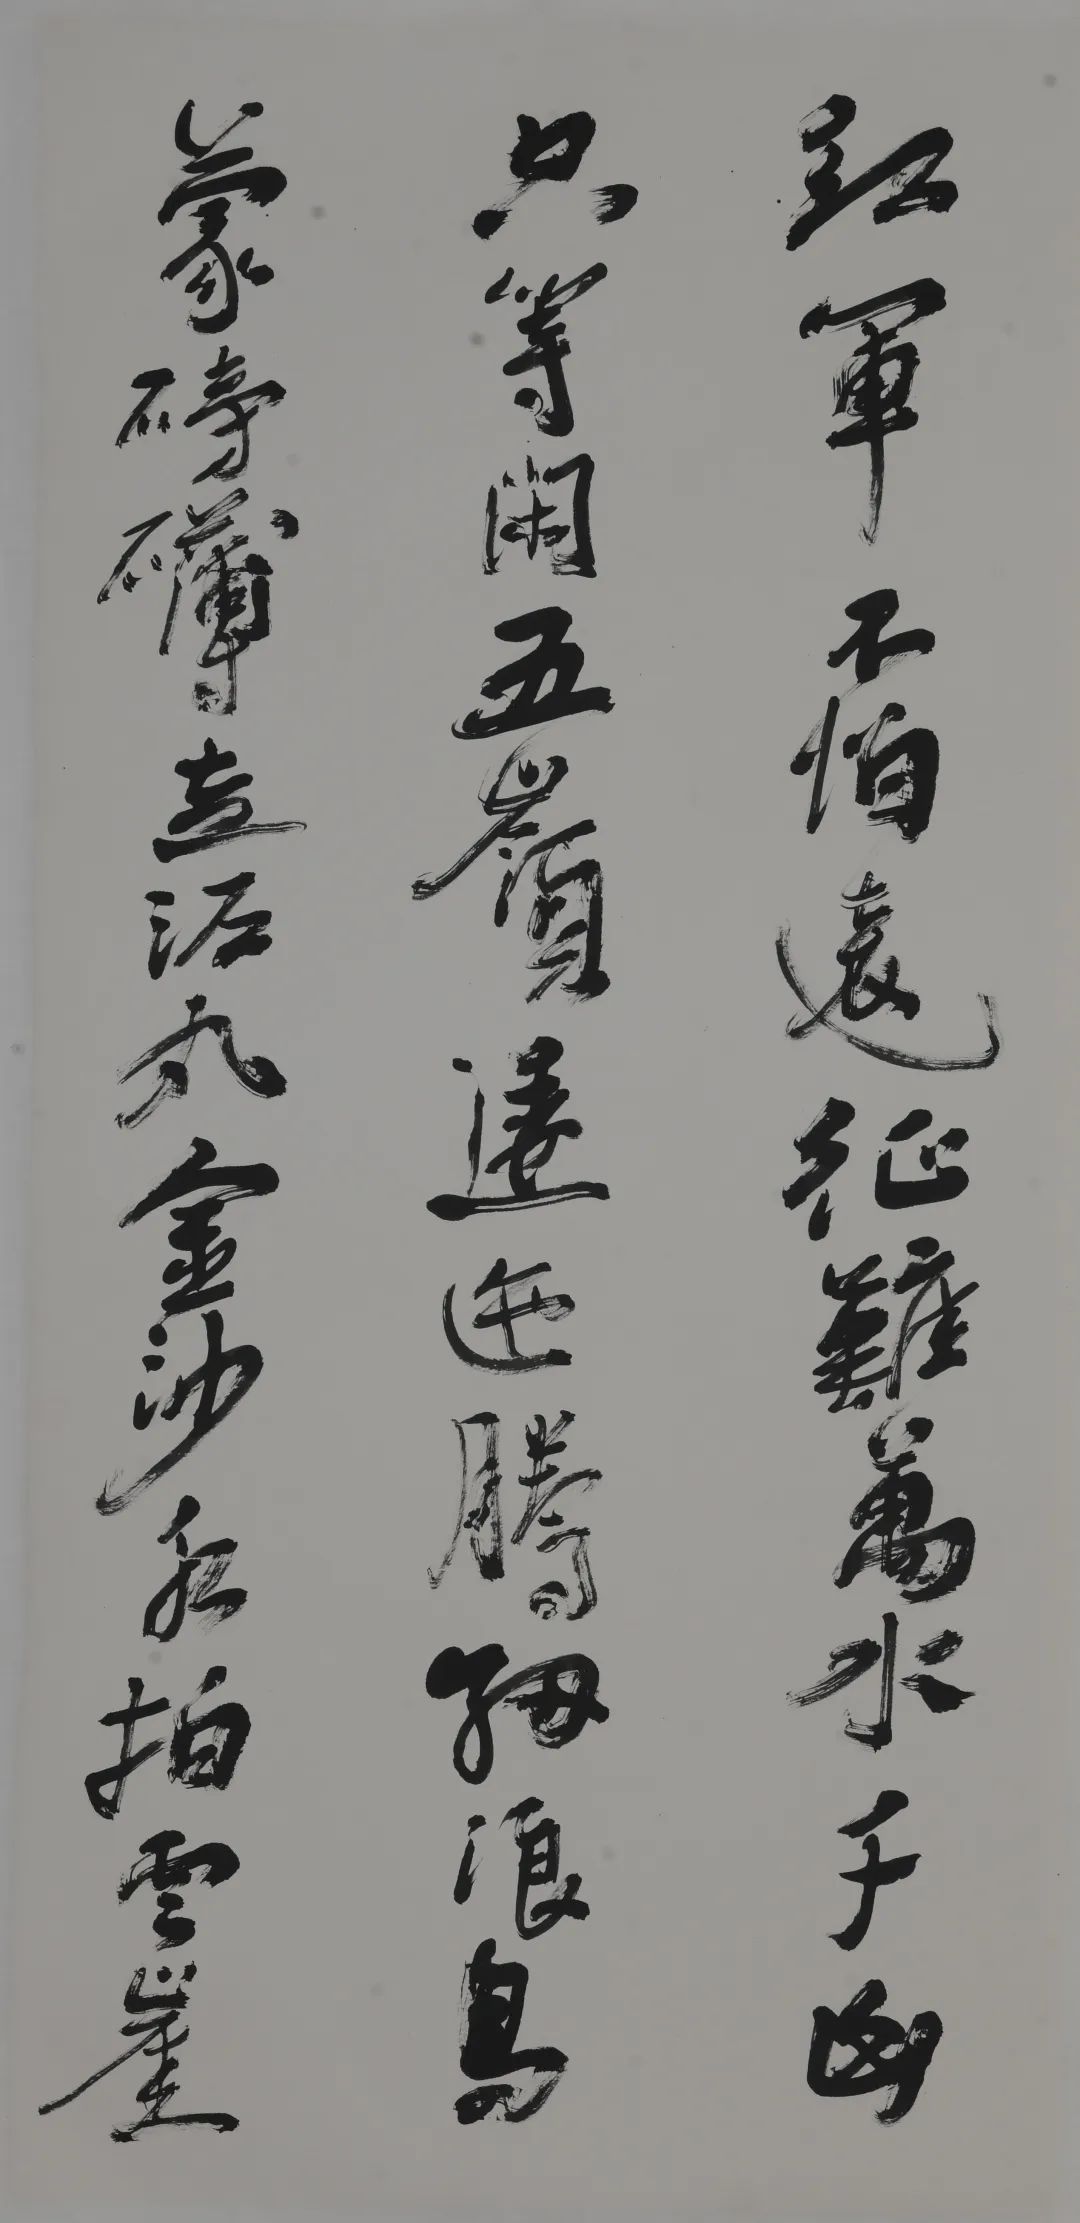 紅軍不怕遠征難萬水千山
只等閑五嶺逶迤騰細浪烏
蒙磅礴走泥丸金沙水拍雲崖